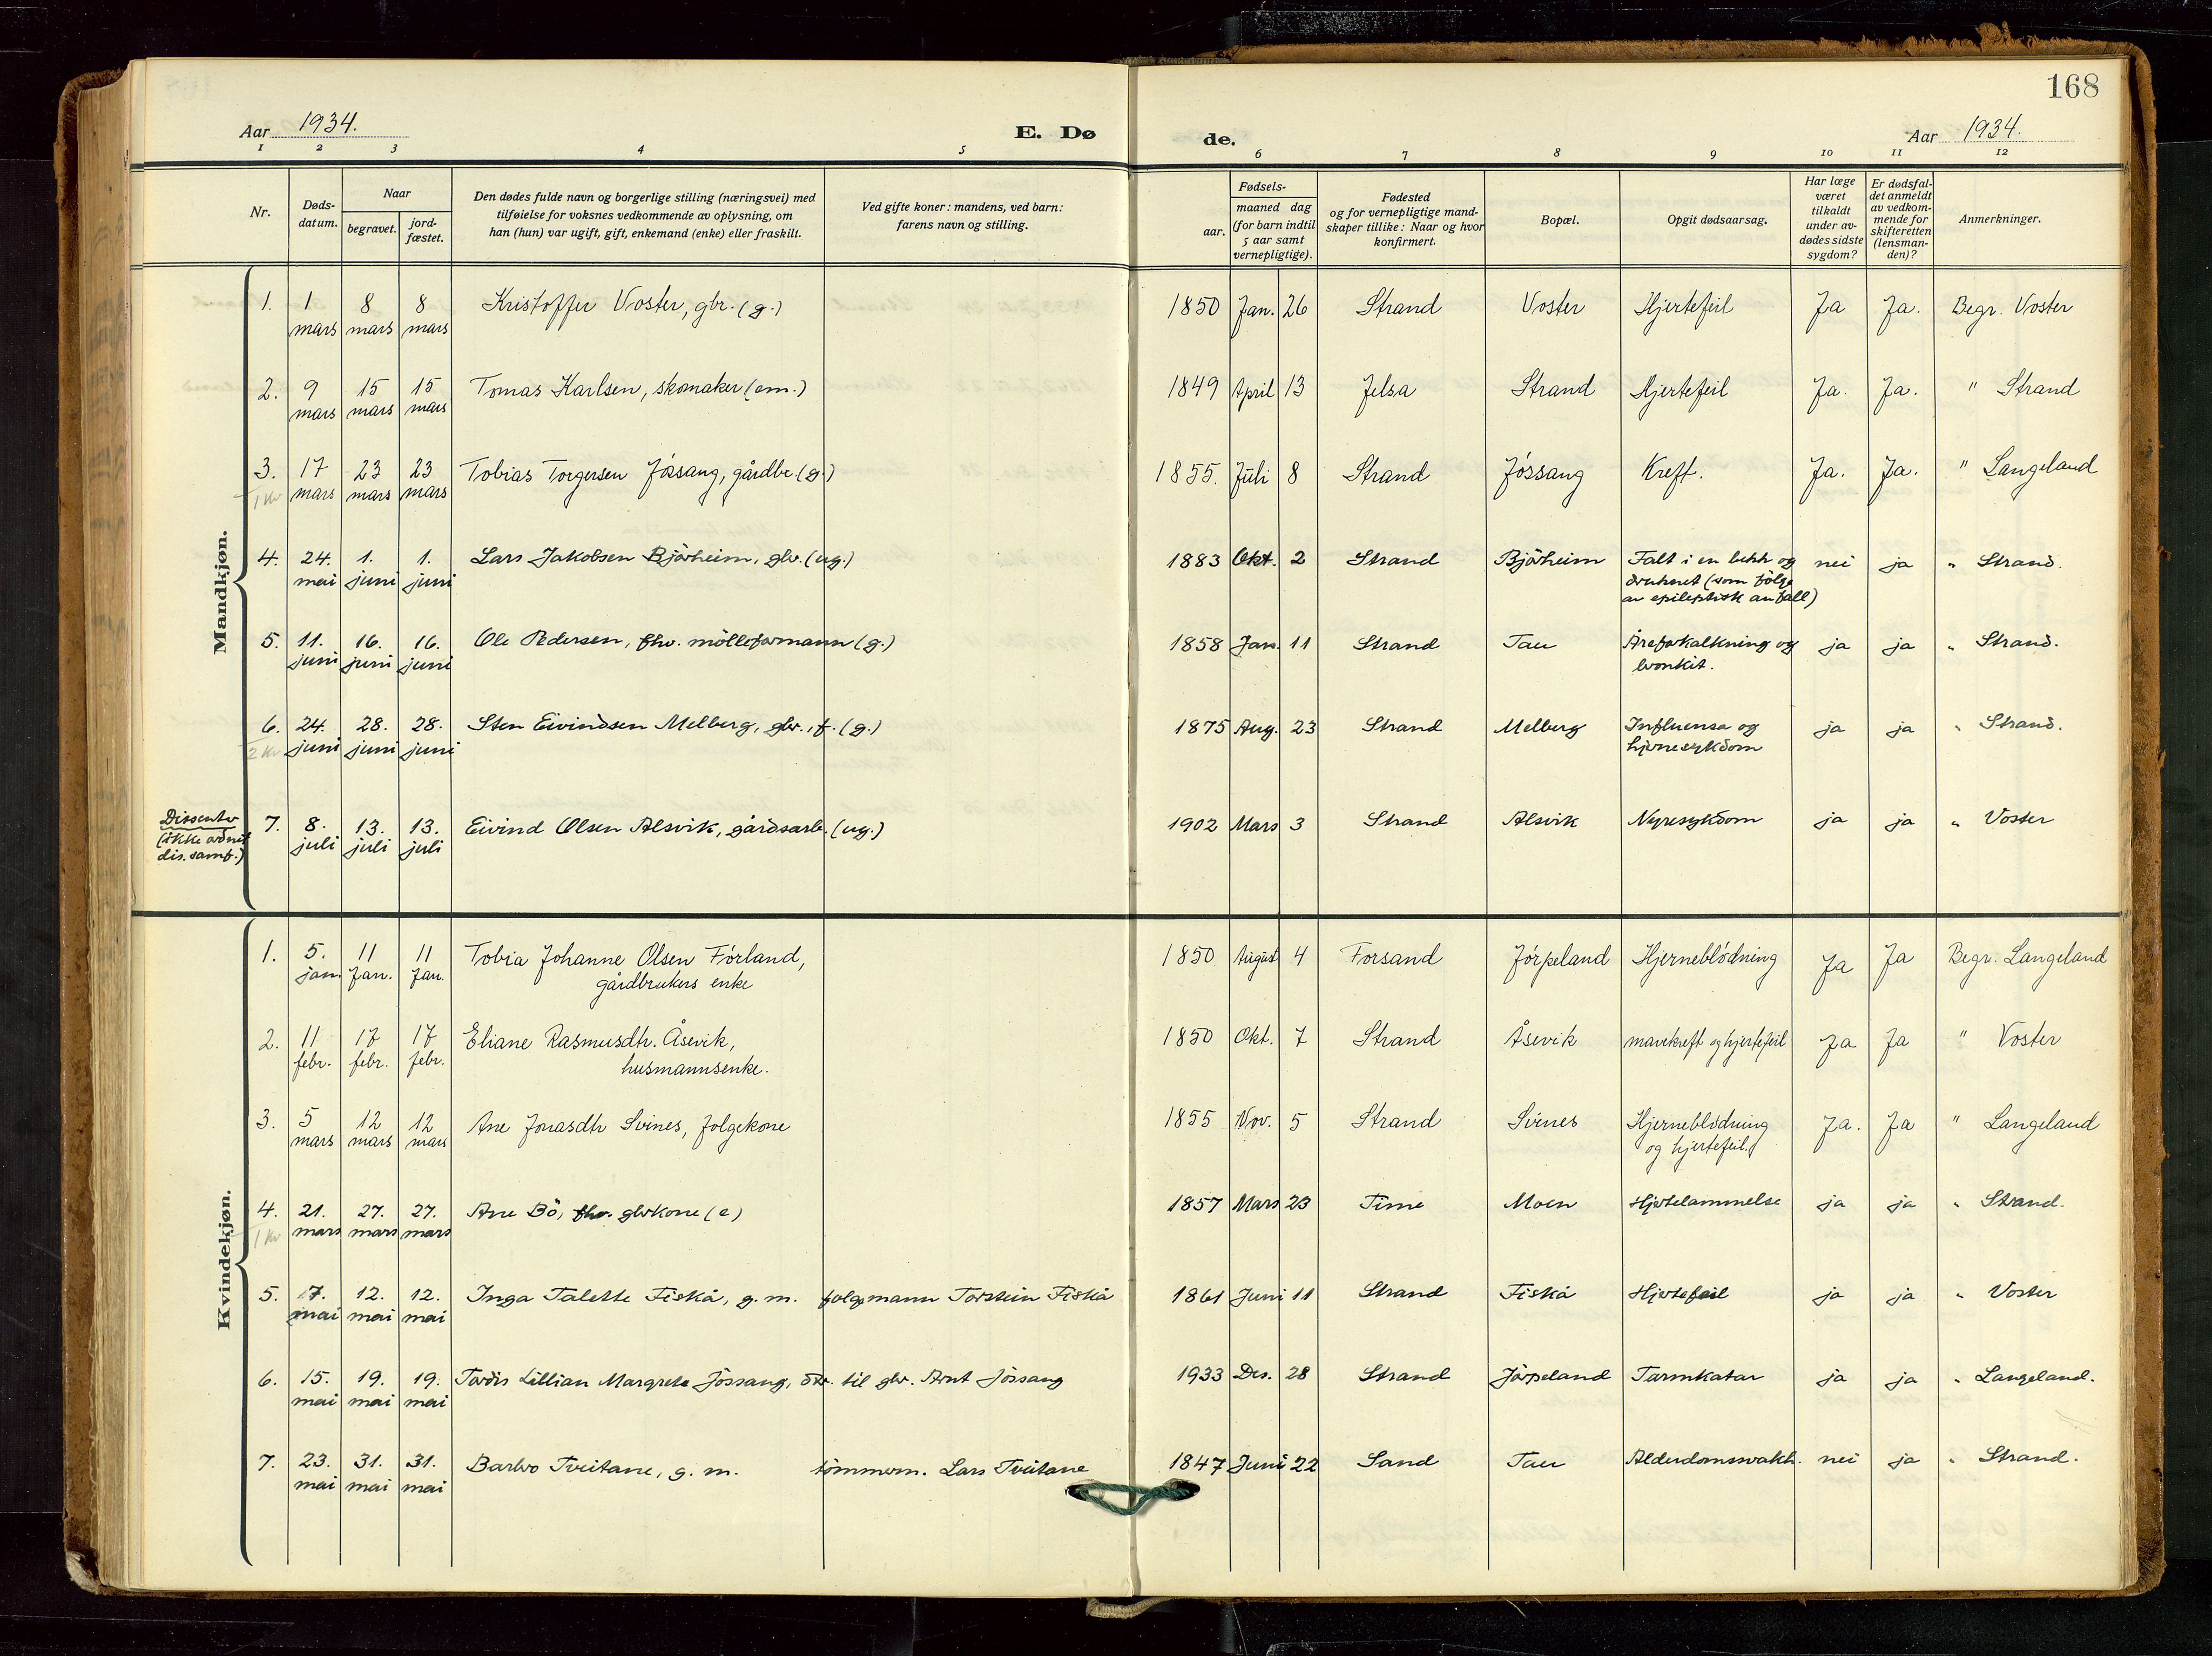 168
Aar 1934. E. Døde. Aar 1934.
1 2 3 4 5 6 7 8 9 10 11 12
Nr.
Døds-datum.
Naar
begravet. jord-fæstet.
Den dødes fulde navn og borgerlige stilling (næringsvei) med
tilføielse for voksnes vedkommende av oplysning, om
han (hun) var ugift, gift, enkemand (enke) eller fraskilt.
Ved gifte koner: mandens, ved barn:
farens navn og stilling.
Fødsels-
aar. maaned dag
(for barn indtil
5 aar samt
vernepligtige).
Fødested
og for vernepligtige mand-
skaper tillike: Naar og hvor
konfirmert.
Bopæl.
Opgit dødsaarsag.
Har læge
været
tilkaldt
under av-
dødes sidste
sygdom?
Er dødsfal-
det anmeldt
av vedkom-
mende for
skifteretten
(lensman-
den)?
Anmerkninger.
Mandkjøn.
1. 1 mars 8 mars 8 mars Kristoffer Voster, gbr. (g.) 1850 Jan. 26 Strand Voster Hjertefeil Ja Ja. Begr. Voster
2. 9 mars 15 mars 15 mars Tomas Karlsen, skomaker (em.) 1849 April 13 Jelsa Strand Hjertefeil Ja. Ja. " Strand
3. 17 mars 23 mars 23 mars Tobias Torgersen Jössang, gårdbr. (g.) 1855. Juli 8 Strand Jössang Kreft. Ja. Ja. " Langeland
1 kr
4. 24. mai 1. juni 1. juni Lars Jakobsen Björheim, gbr. (ug.) 1883 Okt. 2 Strand Björheim Falt i en bekk og nei ja " Strand.
druknet (som følge
av epileptisk anfall)
5. 11. juni 16. juni 16. juni Ole Pedersen, fhv. mölleformann (g.) 1858 Jan. 11 Strand Tau Åreforkalkning og ja ja " Strand.
bronkit.
6. 24. juni 28. juni 28. juni Sten Eivindsen Melberg, gbr., f. (g.) 1875 Aug. 23 Strand Melberg Influensa og ja ja " Strand.
2 kr hjernesykdom
Dissenter
(ikke ordnet
dis. samf.)
7. 8. juli 13. juli 13. juli Eivind Olsen Alsvik, gårdsarb. (ug.) 1902 Mars 3 Strand Alsvik Nyresykdom ja ja " Voster
Kvindekjøn.
1. 5. jan. 11 Jan. 11 Jan. Tobia Johanne Olsen Förland, 1850 August 4 Forsand Jörpeland Hjerneblödning Ja Ja Begr. Langeland
gårdbrukers enke
2. 11 febr. 17 febr. 17 febr. Eliane Rasmusdtr. Åsevik, 1850 Okt. 7 Strand Åsevik mavekreft og hjertefeil Ja Ja " Voster
husmannsenke.
3. 5 mars 12 mars 12 mars Ane Jonasdtr Svines, folgekone 1855 Nov. 5 Strand Svines Hjerneblödning Ja. Ja " Langeland
og hjertefeil.
4. 21. mars 27. mars 27. mars Ane Bö, fhv. gbrkone (e) 1857 Mars 23 Time Moen Hjertelammelse ja ja " Strand.
1 kr
5. 7. mai 12. mai 12. mai Inga Talette Fiskå, g. m. folgemann Torstein Fiskå 1861 Juni 11 Strand Fiskå Hjertefeil ja ja " Voster
6. 15. mai 19. mai 19. mai Tordis Lillian Margrete Jössang, dtr. til gbr. Arnt Jössang 1933 Des. 28 Strand Jörpeland Tarmkatar ja ja " Langeland.
7. 23. mai 31. mai 31. mai Barbro Tveitane, g. m. tömmerm. Lars Tveitane 1847 Juni 22 Sand Tau Alderdomssvakh. nei ja " Strand.